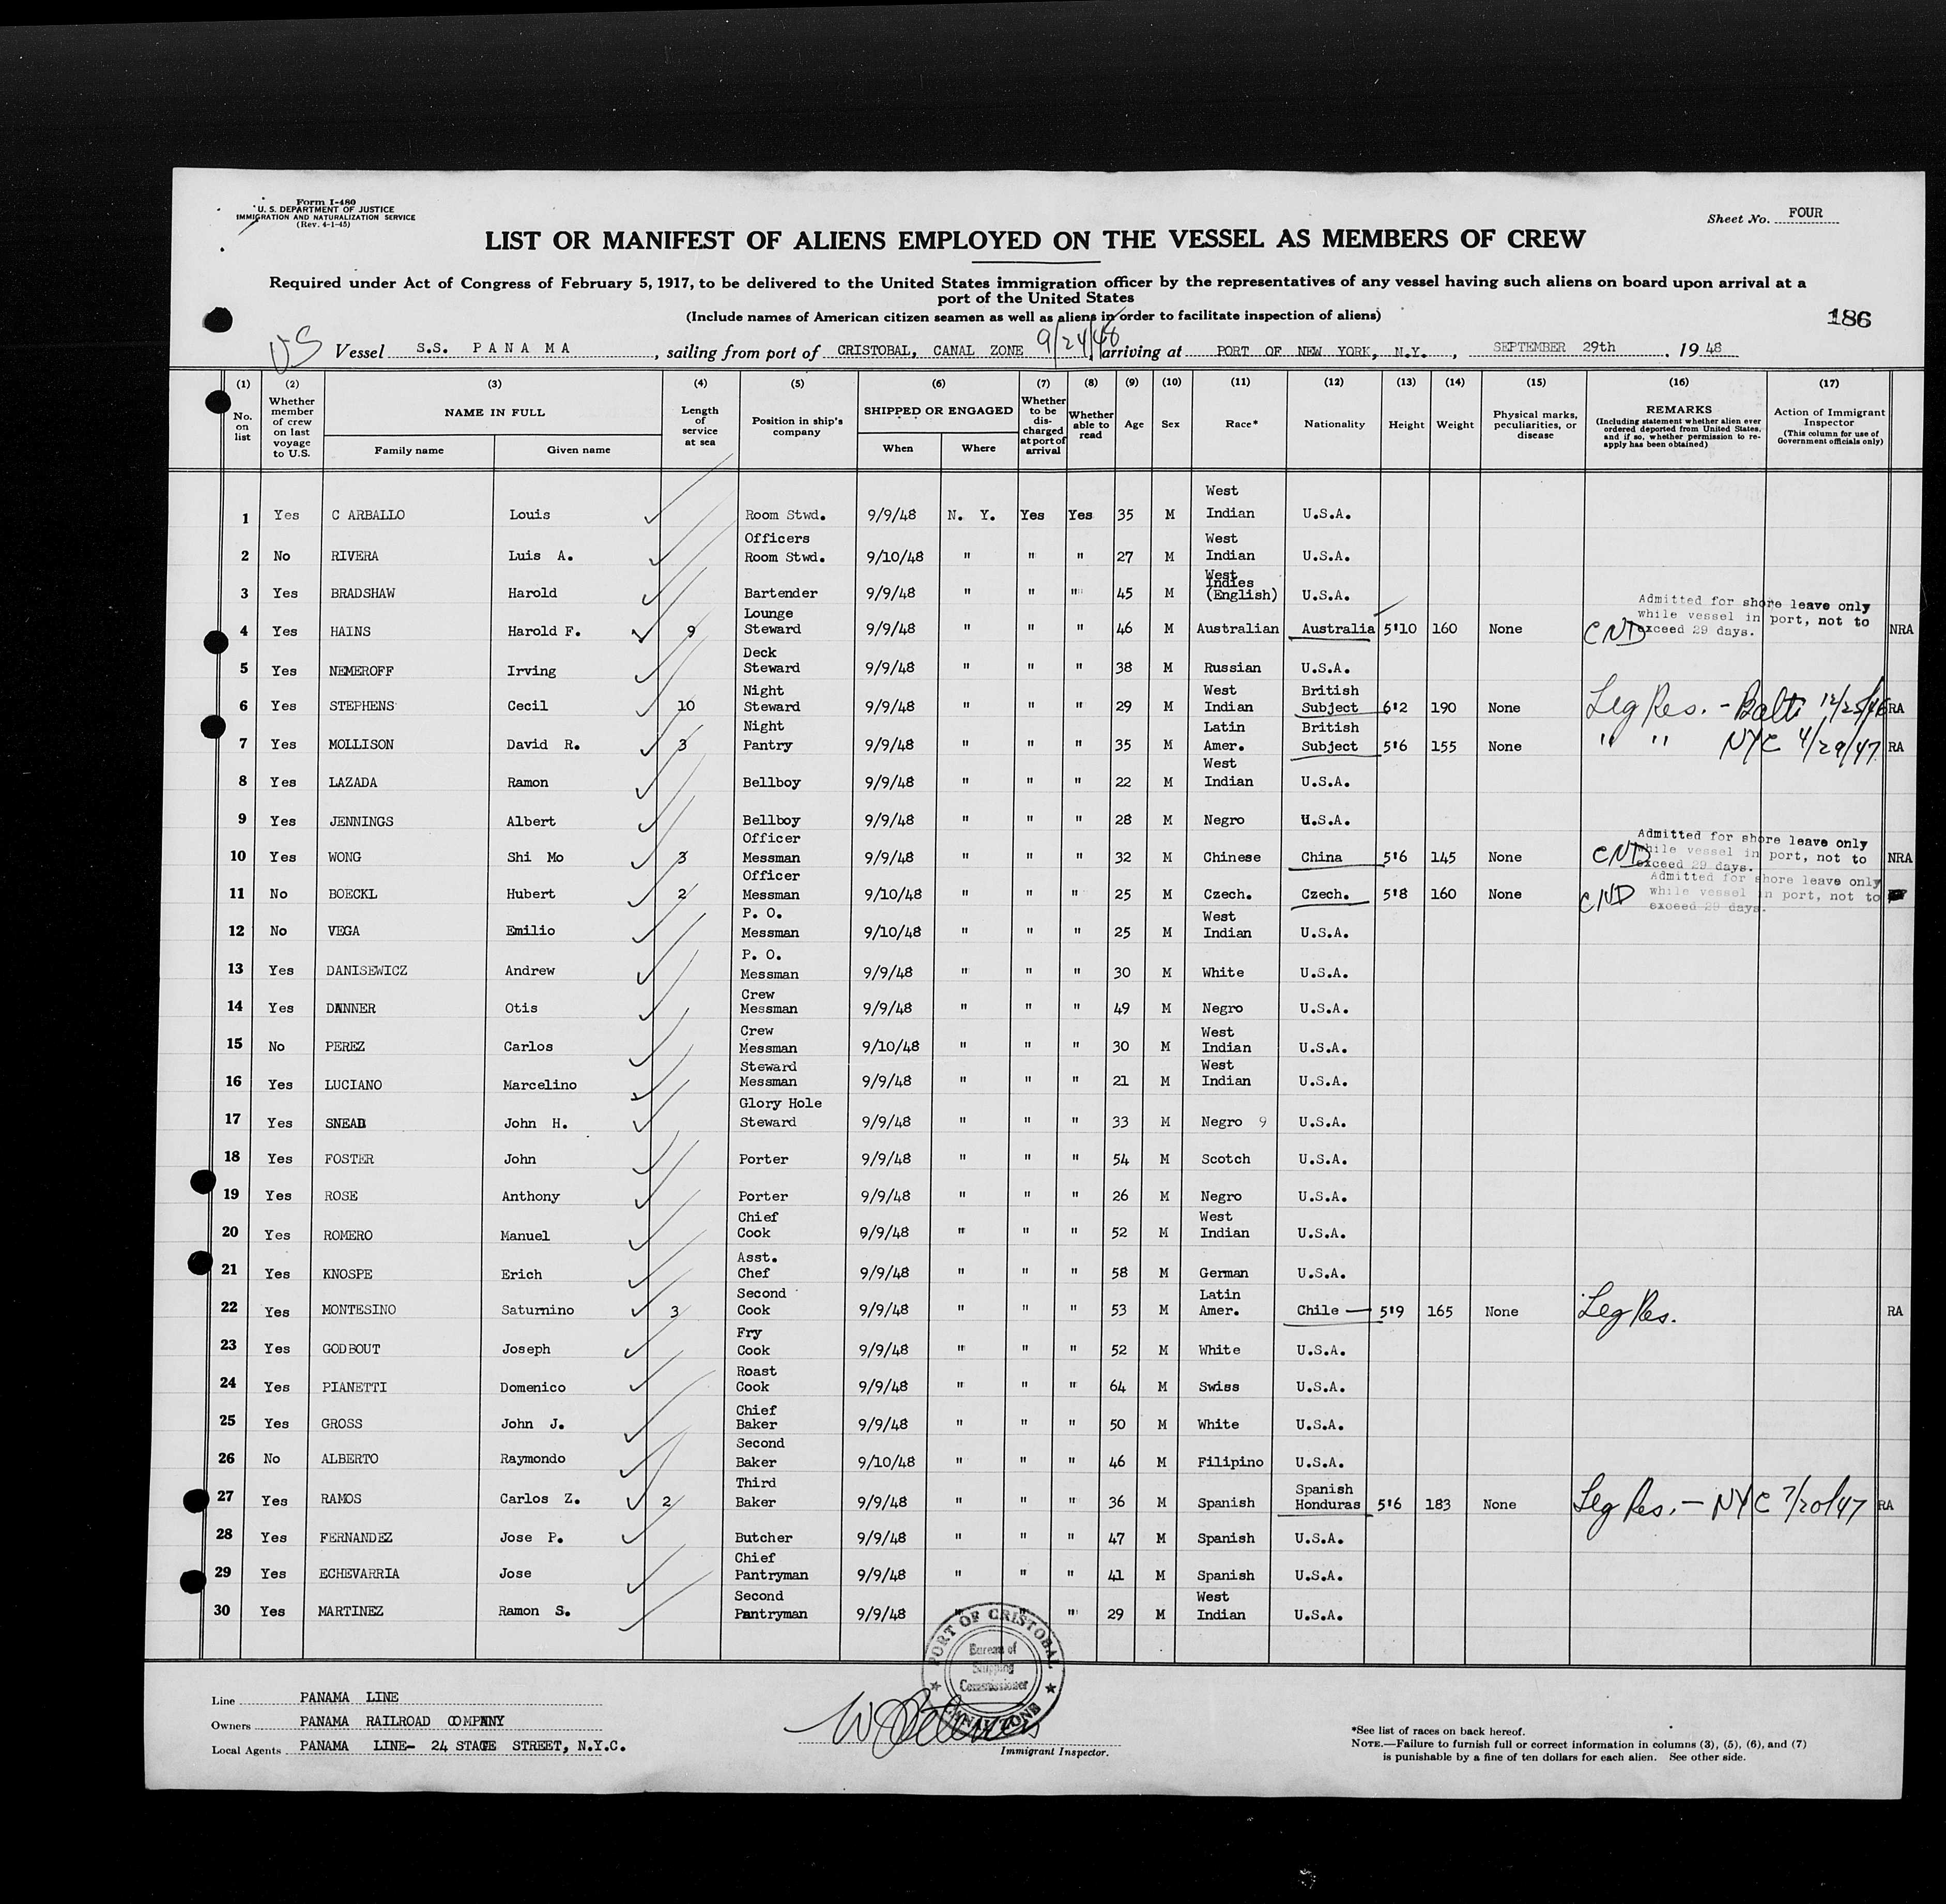 Form I-480
U. S. DEPARTMENT OF JUSTICE
IMMIGRATION AND NATURALIZATION SERVICE
(Rev. 4-1-45)
Sheet No. FOUR
LIST OR MANIFEST OF ALIENS EMPLOYED ON THE VESSEL AS MEMBERS OF CREW
Required under Act of Congress of February 5, 1917, to be delivered to the United States immigration officer by the representatives of any vessel having such aliens on board upon arrival at a
port of the United States
(Include names of American citizen seamen as well as aliens in order to facilitate inspection of aliens)
186
US Vessel S.S. PANAMA, sailing from port of CRISTOBAL, CANAL ZONE 9/24/48 arriving at PORT OF NEW YORK, N.Y., SEPTEMBER 29th, 1948
(1) No. on list
(2) Whether member of crew on last voyage to U.S.
(3) NAME IN FULL Family name Given name
(4) Length of service at sea
(5) Position in ship's company
(6) SHIPPED OR ENGAGED When Where
(7) Whether to be discharged at port of arrival
(8) Whether able to read
(9) Age
(10) Sex
(11) Race*
(12) Nationality
(13) Height
(14) Weight
(15) Physical marks, peculiarities, or disease
(16) REMARKS (Including statement whether alien ever ordered deported from United States, and if so, whether permission to reapply has been obtained)
(17) Action of Immigrant Inspector (This column for use of Government officials only)
1 Yes C ARBALLO Louis Room Stwd. 9/9/48 N. Y. Yes Yes 35 M West Indian U.S.A.
2 No RIVERA Luis A. Officers Room Stwd. 9/10/48 " " " 27 M West Indian U.S.A.
3 Yes BRADSHAW Harold Bartender 9/9/48 " " " 45 M West Indies (English) U.S.A.
4 Yes HAINS Harold F. 9 Lounge Steward 9/9/48 " " " 46 M Australian Australia 5'10 160 None CND Admitted for shore leave only while vessel in port, not to exceed 29 days. NRA
5 Yes NEMEROFF Irving Deck Steward 9/9/48 " " " 38 M Russian U.S.A.
6 Yes STEPHENS Cecil 10 Night Steward 9/9/48 " " " 29 M West Indian British Subject 6'2 190 None Leg Res. - Balti 12/25/46 RA
7 Yes MOLLISON David R. 3 Night Pantry 9/9/48 " " " 35 M Latin Amer. British Subject 5'6 155 None " " NYC 4/29/47 RA
8 Yes LAZADA Ramon Bellboy 9/9/48 " " " 22 M West Indian U.S.A.
9 Yes JENNINGS Albert Bellboy 9/9/48 " " " 28 M Negro U.S.A.
10 Yes WONG Shi Mo 3 Officer Messman 9/9/48 " " " 32 M Chinese China 5'6 145 None CND Admitted for shore leave only while vessel in port, not to exceed 29 days. NRA
11 No BOECKL Hubert 2 Officer Messman 9/10/48 " " " 25 M Czech. Czech. 5'8 160 None CND Admitted for shore leave only while vessel in port, not to exceed 29 days.
12 No VEGA Emilio P. O. Messman 9/10/48 " " " 25 M West Indian U.S.A.
13 Yes DANISEWICZ Andrew P. O. Messman 9/9/48 " " " 30 M White U.S.A.
14 Yes DANNER Otis Crew Messman 9/9/48 " " " 49 M Negro U.S.A.
15 No PEREZ Carlos Crew Messman 9/10/48 " " " 30 M West Indian U.S.A.
16 Yes LUCIANO Marcelino Steward Messman 9/9/48 " " " 21 M West Indian U.S.A.
17 Yes SNEAD John H. Glory Hole Steward 9/9/48 " " " 33 M Negro 9 U.S.A.
18 Yes FOSTER John Porter 9/9/48 " " " 54 M Scotch U.S.A.
19 Yes ROSE Anthony Porter 9/9/48 " " " 26 M Negro U.S.A.
20 Yes ROMERO Manuel Chief Cook 9/9/48 " " " 52 M West Indian U.S.A.
21 Yes KNOSPE Erich Asst. Chef 9/9/48 " " " 58 M German U.S.A.
22 Yes MONTESINO Saturnino 3 Second Cook 9/9/48 " " " 53 M Latin Amer. Chile 5'9 165 None Leg Res. RA
23 Yes GODBOUT Joseph Fry Cook 9/9/48 " " " 52 M White U.S.A.
24 Yes PIANETTI Domenico Roast Cook 9/9/48 " " " 64 M Swiss U.S.A.
25 Yes GROSS John J. Chief Baker 9/9/48 " " " 50 M White U.S.A.
26 No ALBERTO Raymondo Second Baker 9/10/48 " " " 46 M Filipino U.S.A.
27 Yes RAMOS Carlos Z. 2 Third Baker 9/9/48 " " " 36 M Spanish Spanish Honduras 5'6 183 None Leg Res. - NYC 7/20/47 RA
28 Yes FERNANDEZ Jose P. Butcher 9/9/48 " " " 47 M Spanish U.S.A.
29 Yes ECHEVARRIA Jose Chief Pantryman 9/9/48 " " " 41 M Spanish U.S.A.
30 Yes MARTINEZ Ramon S. Second Pantryman 9/9/48 " " " 29 M West Indian U.S.A.
PORT OF CRISTOBAL
Bureau of
Shipping
Commissioner
CANAL ZONE
Line PANAMA LINE
Owners PANAMA RAILROAD COMPANY
Local Agents PANAMA LINE- 24 STATE STREET, N.Y.C.
Immigrant Inspector.
*See list of races on back hereof.
NOTE.—Failure to furnish full or correct information in columns (3), (5), (6), and (7)
is punishable by a fine of ten dollars for each alien. See other side.